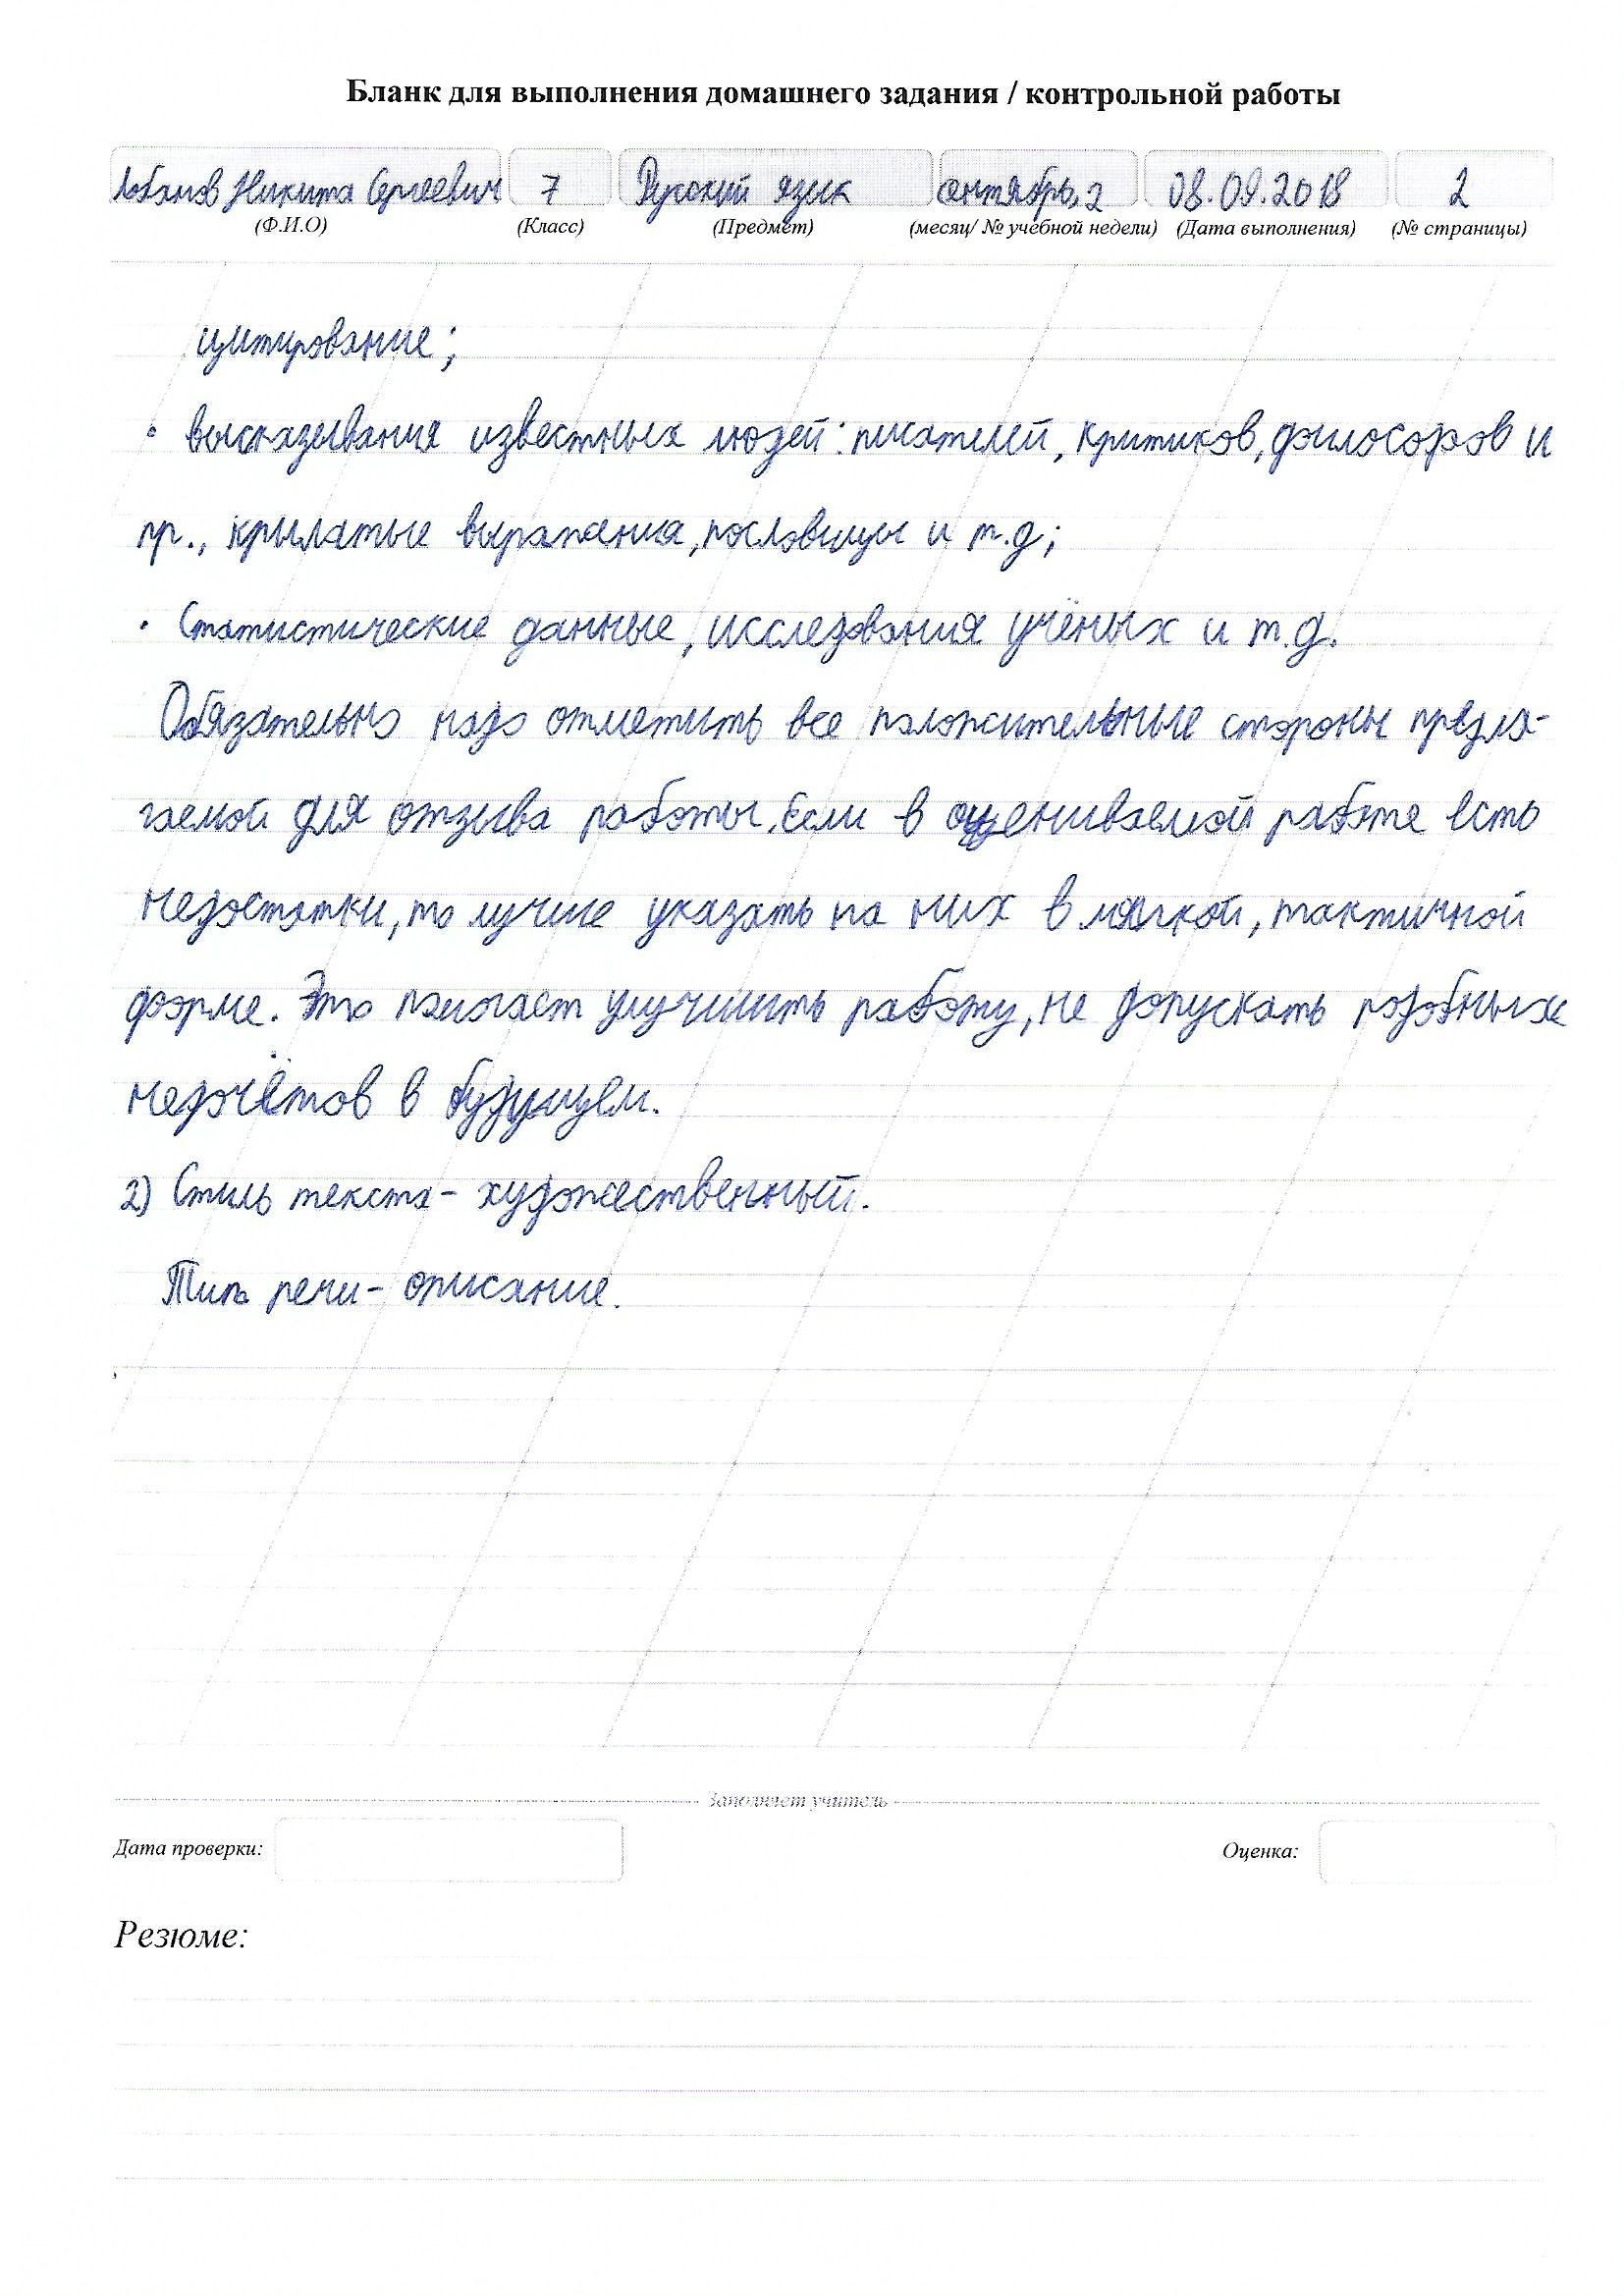 Бланк для выполнения домашнего задания / контрольной работы
Лобанов Никита Сергеевич 7 Русский язык сентябрь, 2 08.09.2018 2
(Ф.И.О) (Класс) (Предмет) (месяц/ № учебной недели) (Дата выполнения) (№ страницы)
цитирование;
• высказывания известных людей: писателей, критиков, философов и
пр., крылатые выражения, пословицы и т.д;
• Статистические данные, исследования учёных и т.д.
Обязательно надо отметить все положительные стороны предла-
гаемой для отзыва работы. Если в оцениваемой работе есть
недостатки, то лучше указать на них в мягкой, тактичной
форме. Это помогает улучшить работу, не допускать подобных
недочётов в будущем.
2) Стиль текста - художественный.
Тип речи - описание.
Заполняет учитель
Дата проверки: Оценка:
Резюме: